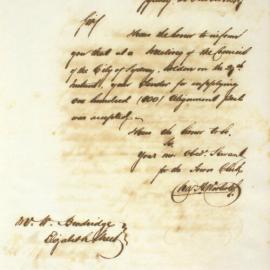 Sir,
Have the honor to inform
you that at a Meeting of the Council
of the City of Sydney, holden on the 29th
instant, your Tender for supplying
one hundred (100) Alignment
was accepted.
Have the honor to be
Sir
Your mo. Obed. Servant
for the Town Clerk
Mr. W.
Elizabeth Street